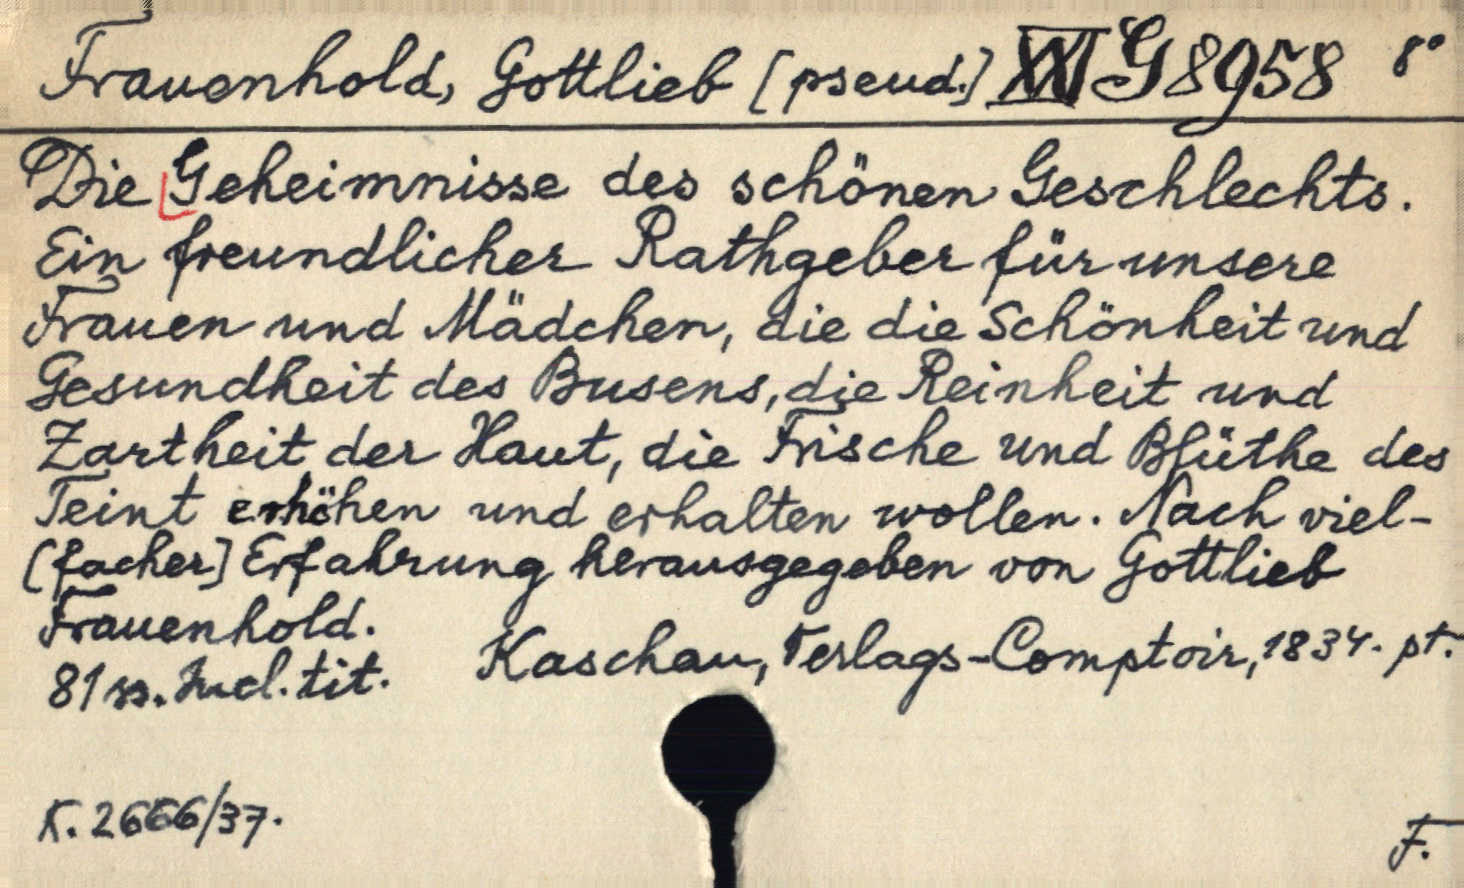 Frauenhold, Gottlieb [pseud.] XXI G 8958 8°
Die Geheimnisse des schönen Geschlechts.
Ein freundlicher Rathgeber für unsere
Frauen und Mädchen, die die Schönheit und
Gesundheit des Busens, die Reinheit und
Zartheit der Haut, die Frische und Blüthe des
Teint erhöhen und erhalten wollen. Nach viel-
[facher] Erfahrung herausgegeben von Gottlieb
Frauenhold.
Kaschau, Verlags-Comptoir, 1834. pt.
81 ss. Incl. tit.
K. 2666/37.
F.